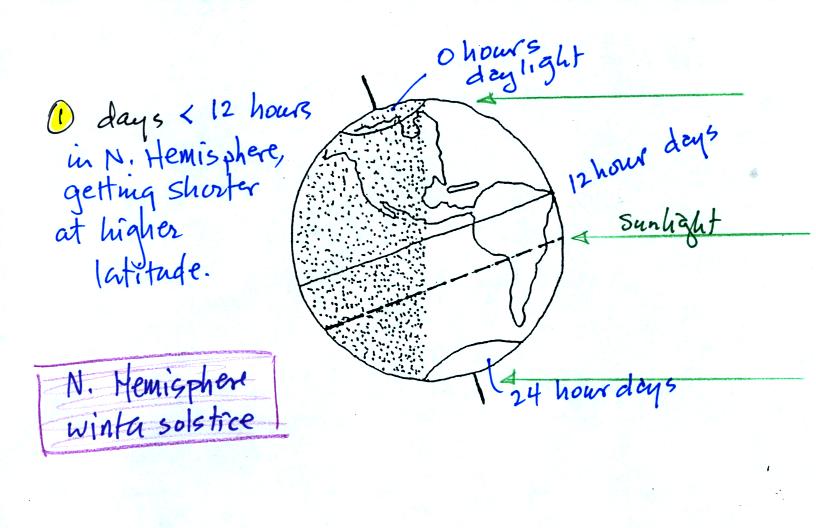 0 hours
daylight
① days < 12 hours
in N. Hemisphere,
getting shorter
at higher
latitude.
12 hour days
Sunlight
24 hour days
N. Hemisphere
winter solstice